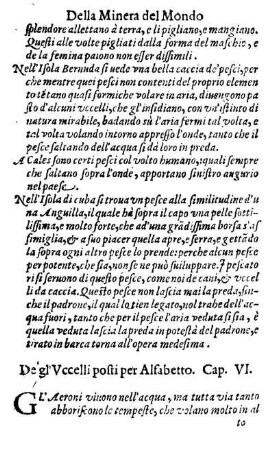 Della Minera del Mondo
splendore allettano à terra, e li pigliano, e mangiano.
Questi alle volte pigliati dalla forma del maschio, e
de la femina paiono non esser dissimili.
Nell'Isola Bernuda si uede vna bella caccia de' pesci, per
che mentre quei pesci non contenti del proprio elemen
to tētano quasi formiche volare in aria, diuengono pa
sto d'alcuni vccelli, che gl'insidiano, con vn'istinto di
natura mirabile, badando sù l'aria fermi tal volta, e
tal volta volando intorno appresso l'onde, tanto che il
pesce saltando dell'acqua si dà loro in preda.
A Cales sono certi pesci col volto humano, i quali sempre
che saltano sopra l'onde, apportano sinistro augurio
nel paese.
Nell'Isola di cuba si troua vn pesce alla similitudine d'u
na Anguilla, il quale hà sopra il capo vna pelle sotti-
lissima, e molto forte, che ad una grādissima borsa s'as
simiglia, & à suo piacer quella apre, e serra, e gettādo
la sopra ogni altro pesce lo prende: perche alcun pesce
per potente, che sia, non se ne può suiluppare. I pescato
ri si seruono di questo pesce, come noi de cani, & vccel
li da caccia. Questo pesce non lascia mai la preda, sin-
che il padrone, il qual lo tien legato, nol trahe dell'ac-
qua fuori, tanto che per il pesce l'aria veduta si sia, è
quella veduta lascia la preda in potestà del padrone, e
tirato in barca torna all'opera medesima.
De gl'Vccelli posti per Alfabetto. Cap. VI.
GL'Aeroni viuono nell'acqua, ma tutta via tanto
abborriscono le tempeste, che volano molto in al
to